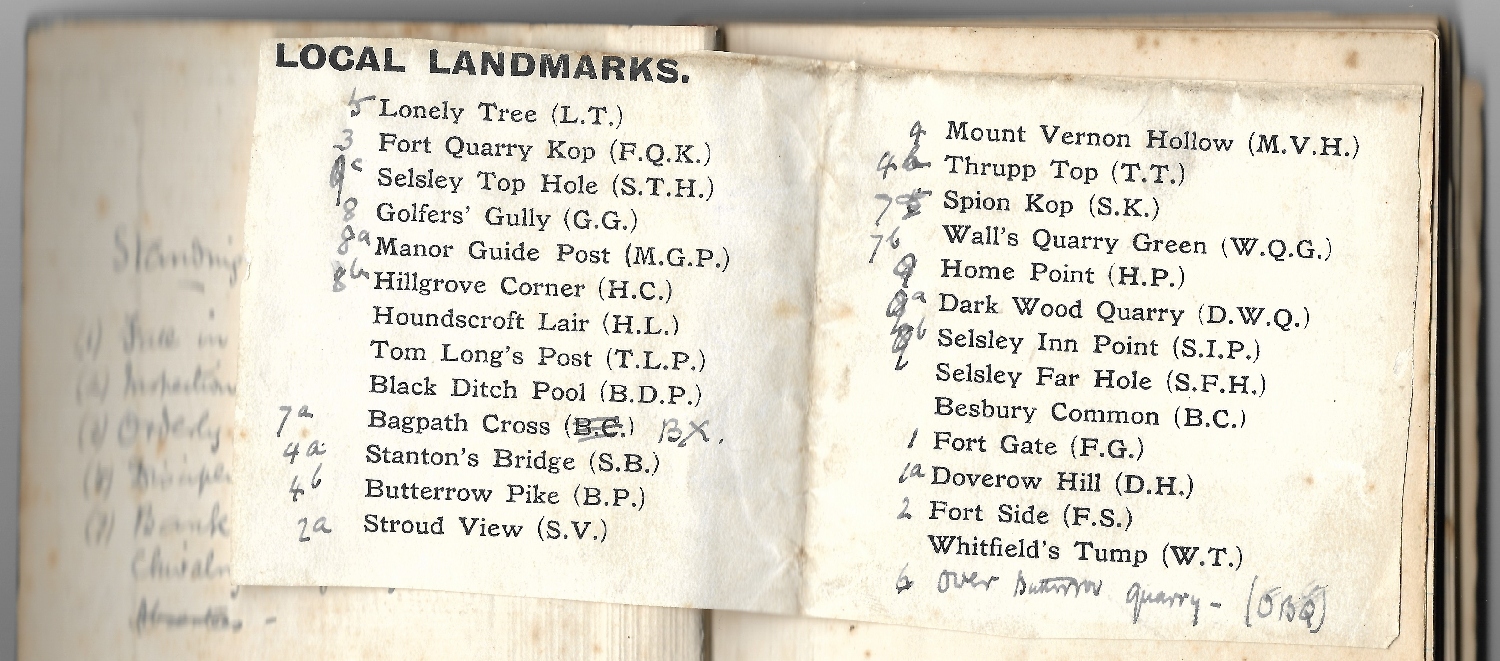 LOCAL LANDMARKS.
5 Lonely Tree (L.T.)
3 Fort Quarry Kop (F.Q.K.)
9c Selsley Top Hole (S.T.H.)
8 Golfers' Gully (G.G.)
8a Manor Guide Post (M.G.P.)
8b Hillgrove Corner (H.C.)
Houndscroft Lair (H.L.)
Tom Long's Post (T.L.P.)
Black Ditch Pool (B.D.P.)
7a Bagpath Cross (B.C.) BX.
4a Stanton's Bridge (S.B.)
4b Butterrow Pike (B.P.)
2a Stroud View (S.V.)
4 Mount Vernon Hollow (M.V.H.)
Thrupp Top (T.T.)
7 Spion Kop (S.K.)
7b Wall's Quarry Green (W.Q.G.)
9 Home Point (H.P.)
9a Dark Wood Quarry (D.W.Q.)
9b Selsley Inn Point (S.I.P.)
Selsley Far Hole (S.F.H.)
Besbury Common (B.C.)
1 Fort Gate (F.G.)
1a Doverow Hill (D.H.)
2 Fort Side (F.S.)
Whitfield's Tump (W.T.)
6 Over Butterrow Quarry - (OBQ)
Standing
(1) in
(2) Inspection
(3) Orderly
(4)
(5) Bank